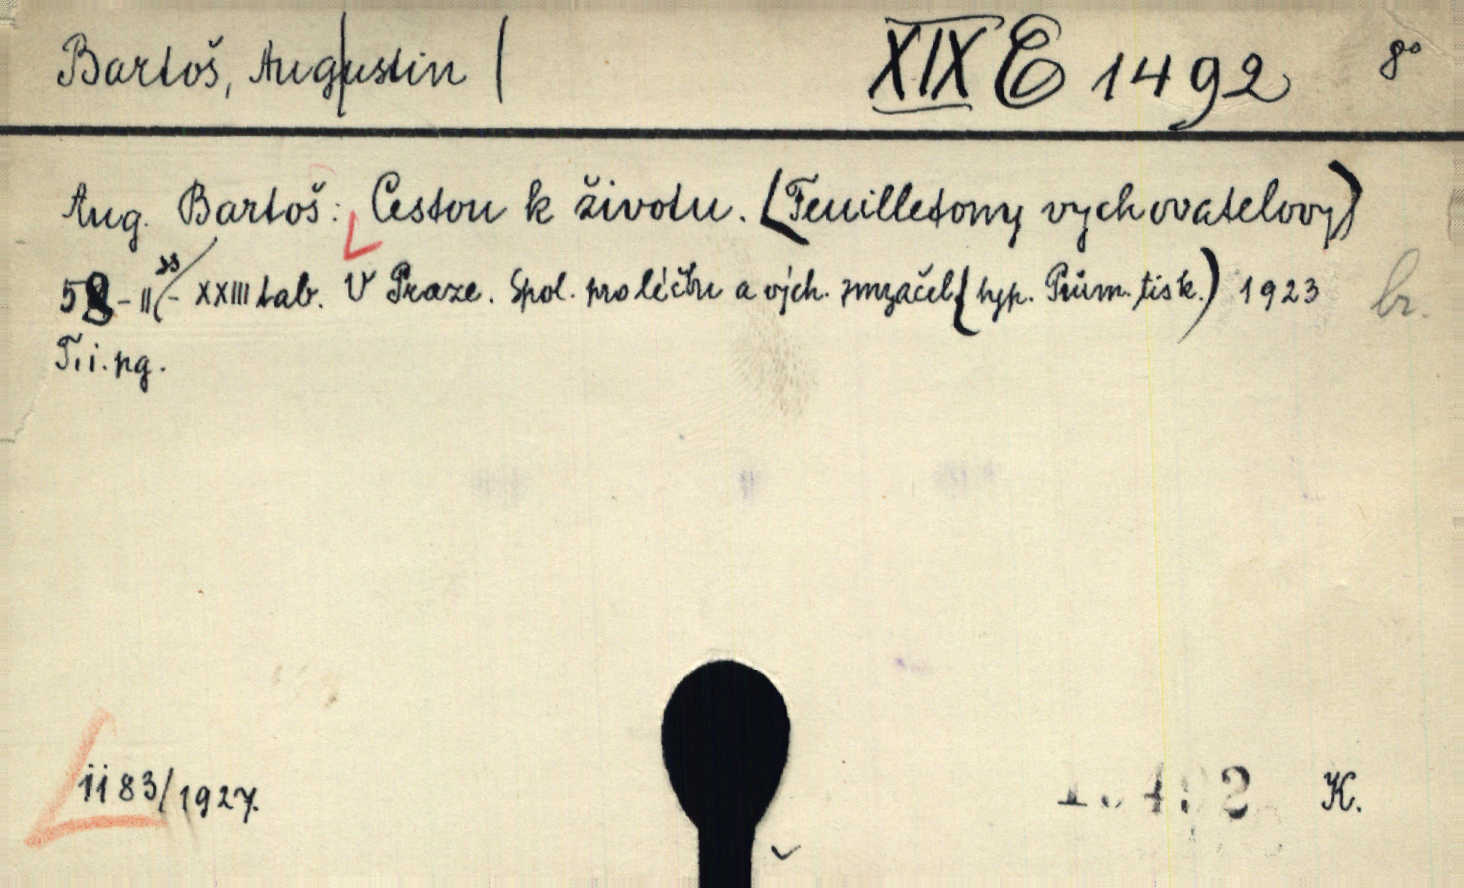 Bartoš, Augustin XIX E 1492 8°
Aug. Bartoš: Cestou k životu. (Feuilletony vychovatelovy)
58-II-XXIII tab. V Praze. Spol. pro léčbu a vých. zmrzačel. (typ. Prům. tisk.) 1923 br.
T. i. pg.
1183/1927.
K.